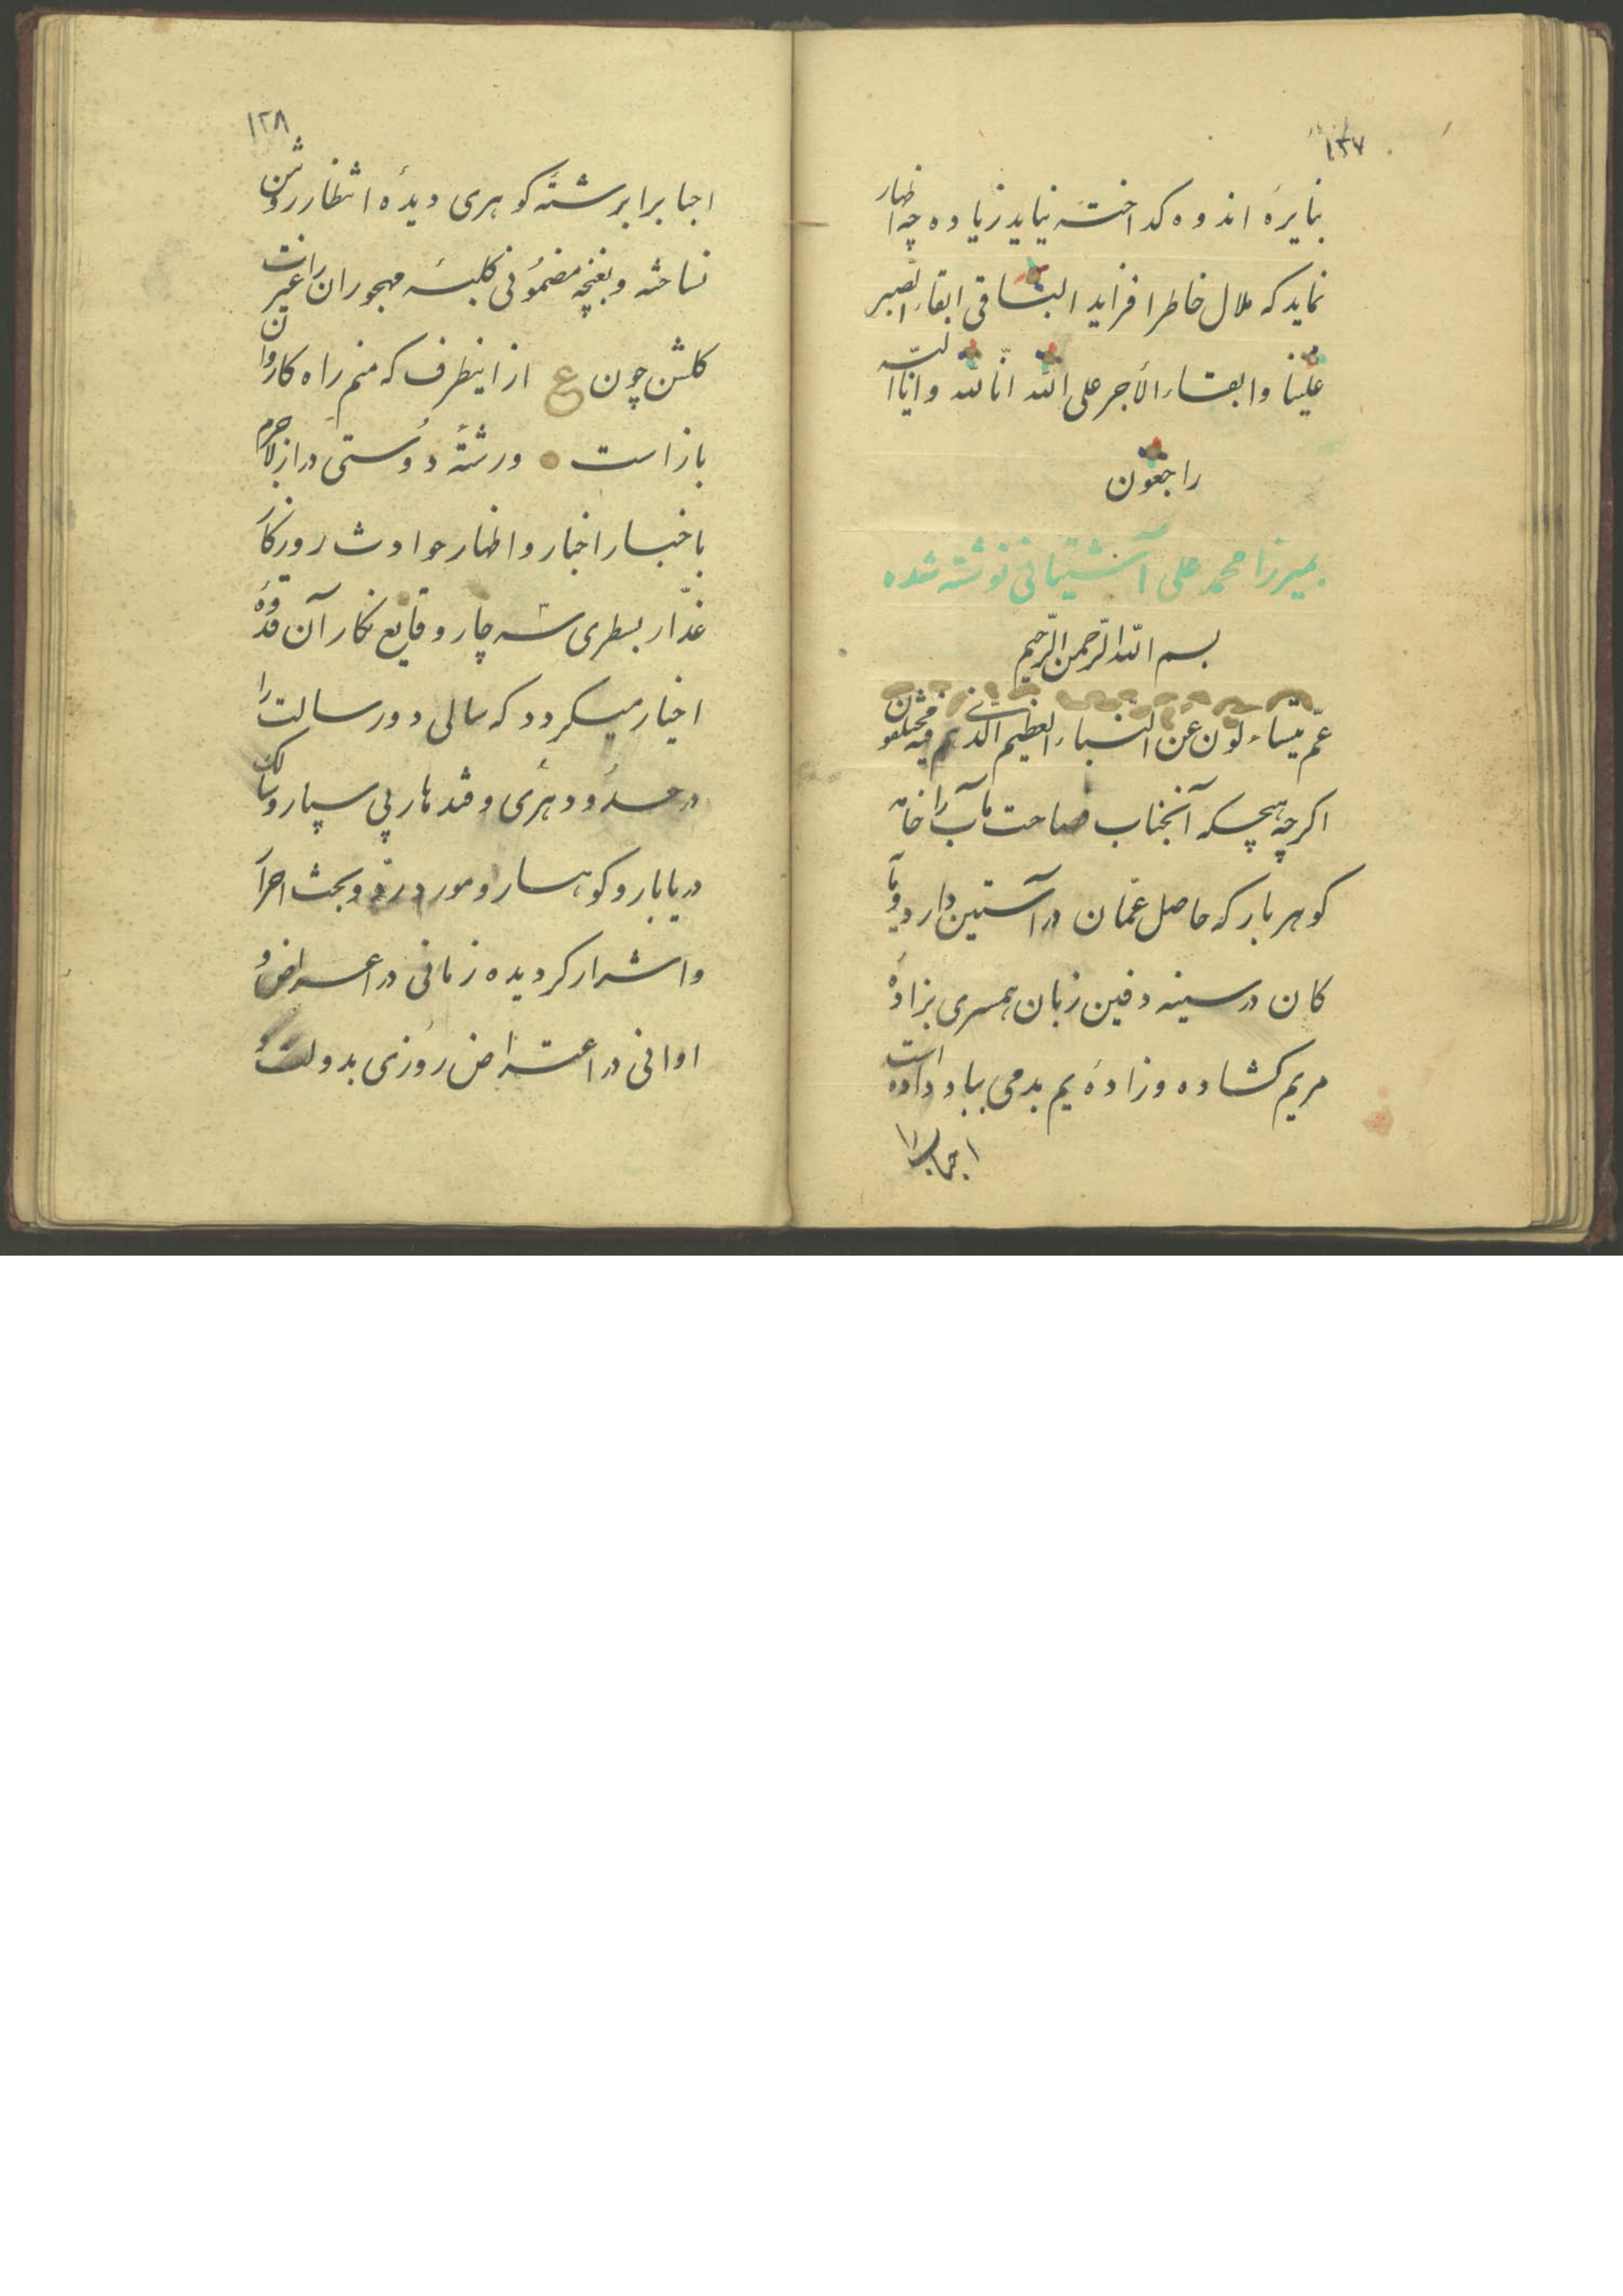 ۱۲۷
بنایرهٔ اندوه کداخته نیاید زیاده چه اظهار
نماید که ملال خاطر افزاید الباقی ابقاء الصبر
علینا وابقاء الأجر علی الله انّا لله وانّا الیه
راجعون
بمیرزا محمد علی آشتیانی نوشته شده
بسم الله الرّحمن الرّحیم
عمّ یتساءلون عن النباء العظیم الذی هم فیه مختلفون
اکرچه هیچکه آنجناب فصاحت مآب را خامهٔ
کوهر بار که حاصل عمّان در آستین دارد و یا
کان در سینه دفین زبان همسری بزادهٔ
مریم کشاده و زادهٔ یم بدمی بباد داده است
احبا را
۱۲۸
احبا را برشتهٔ کوهری دیدهٔ انتظار روشن
نساخته و بغنچه مضمونی کلبهٔ مهجوران را غیرت
کلشن چون ع از اینطرف که منم راه کاروان
باز است ورشتهٔ دوستی دراز لاجرم
باخبار اخبار و اظهار حوادث روزکار
غدّار بسطری سه چار وقایع نکار آن قدوهٔ
اخیار میکردد که سالی دو رسالت را
در حدود هری و قندهار پی سپار و سالک
دریابار و کوهسار و مورد رد و بحث احرار
واشرار کردیده زمانی در اعراض و
اوانی در اعتراض روزی بدولت و